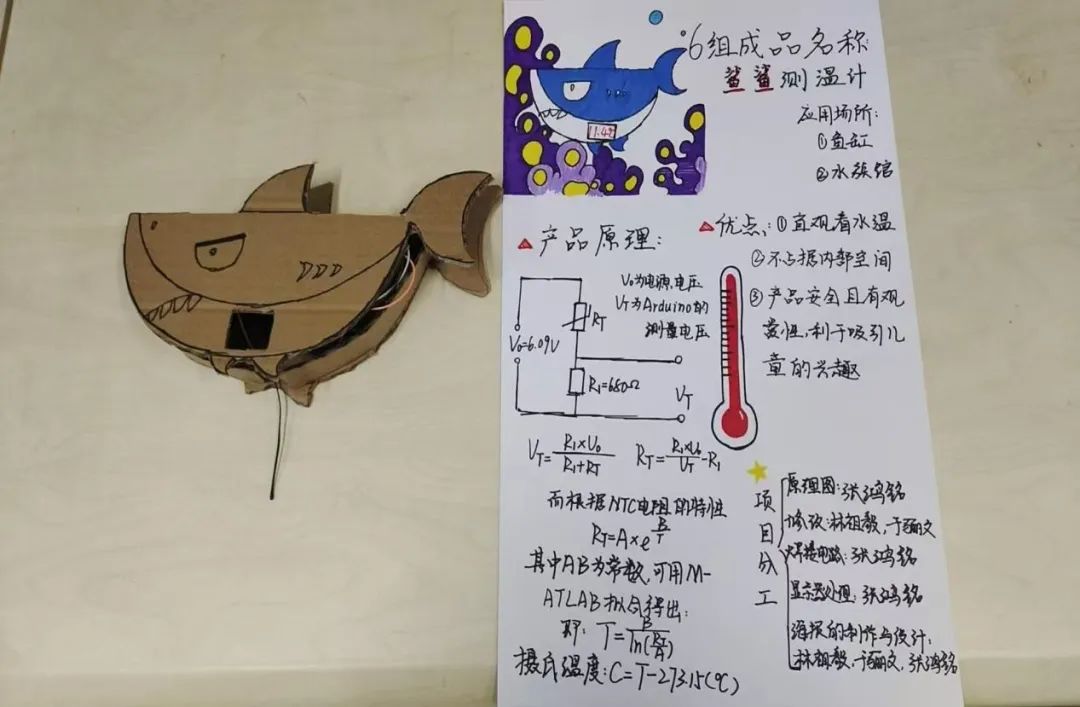 6组成品名称:
鲨鲨测温计
11.48
应用场所:
①鱼缸
②水族馆
产品原理:
V₀为电源电压
V_T为Arduino的
测量电压
R_T
V₀=6.09V
R₁=680Ω
V_T
V_T=R₁×V₀/(R₁+R_T) R_T=R₁×V₀/V_T-R₁
而根据NTC电阻的特性
R_T=A×e^(B/T)
其中AB为常数,可用M-
ATLAB拟合得出:
即: T=B/ln(R_T/A)
摄氏温度:C=T-273.15(℃)
优点:①直观看水温
②不占据内部空间
③产品安全且有观
赏性,利于吸引儿
童的兴趣
项目分工
原理图:张鸿铭
修改:林祖毅,于丽文
焊接电路:张鸿铭
显示器处理:张鸿铭
海报的制作与设计:
林祖毅,于丽文,张鸿铭